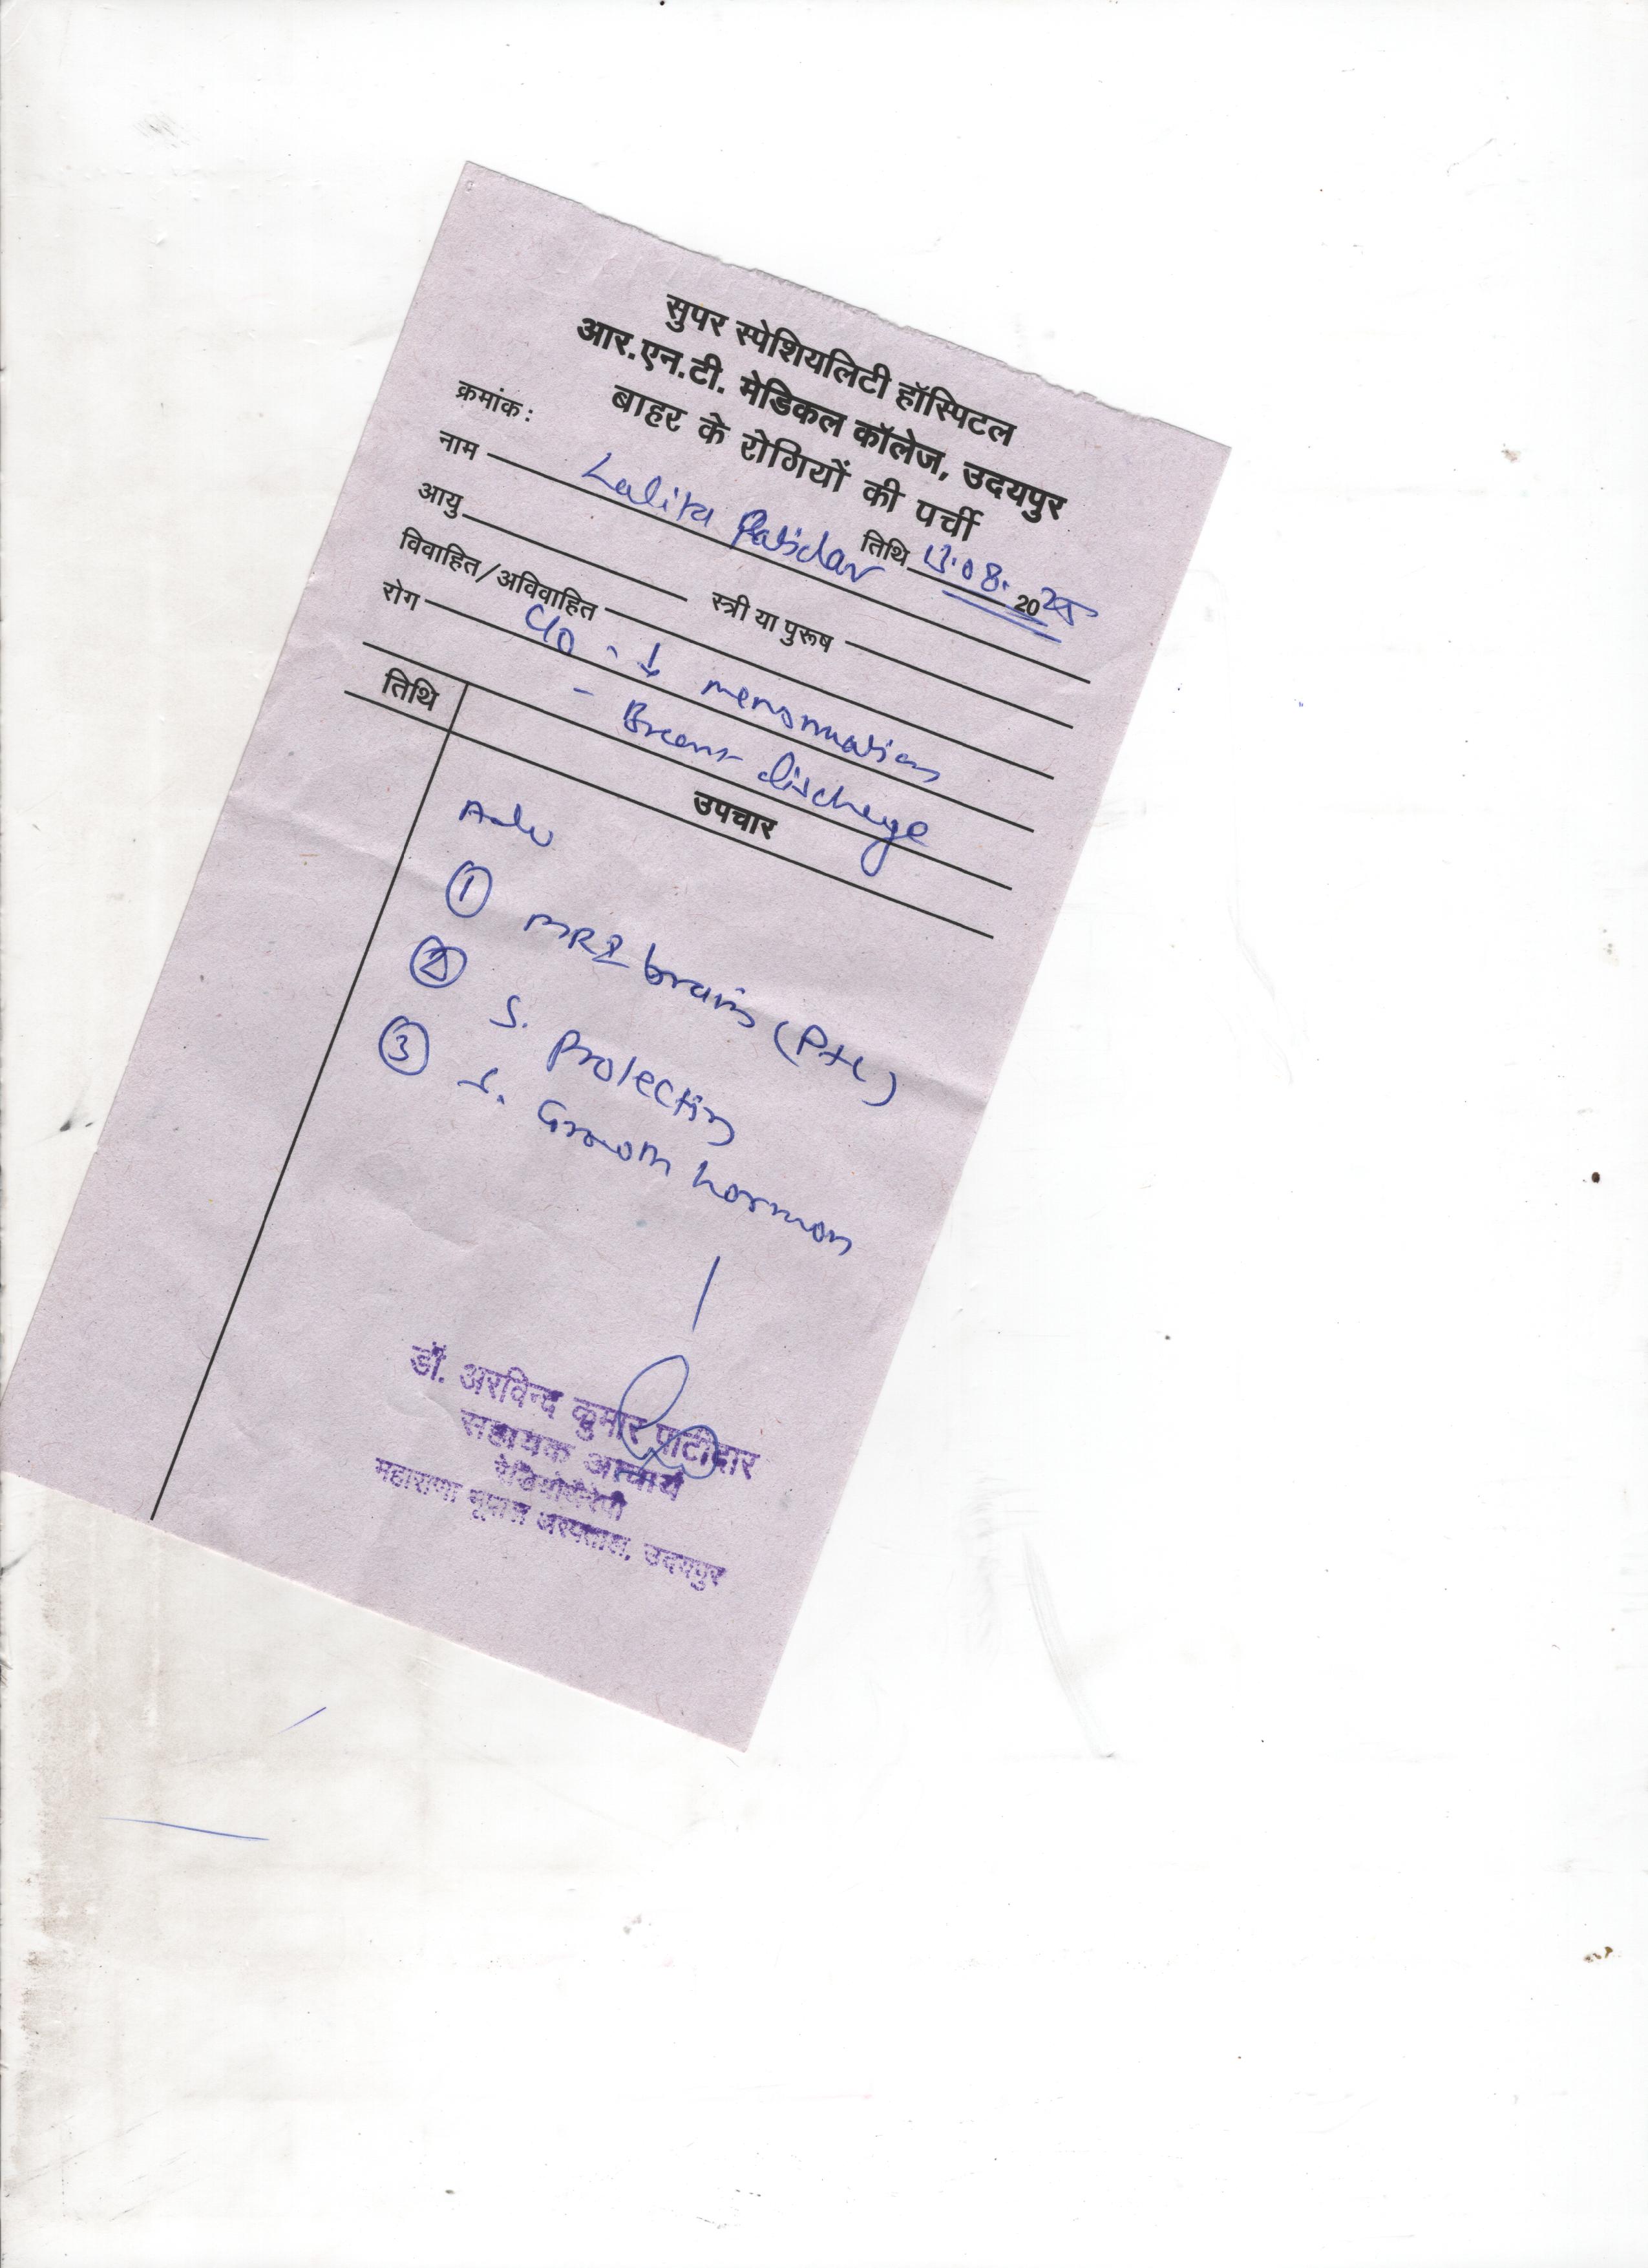 सुपर स्पेशियलिटी हॉस्पिटल
आर.एन.टी. मेडिकल कॉलेज, उदयपुर
बाहर के रोगियों की पर्ची
क्रमांक :
तिथि 13.08.2025
नाम Lalita Patidar
आयु
स्त्री या पुरूष
विवाहित/अविवाहित
रोग C/o - ↓ menstruation
- Breast discharge
तिथि
उपचार
Adv
① MRI brain (P+C)
② S. Prolectin
③ S. Growth hormon
डॉ. अरविन्द कुमार पाटीदार
सहायक आचार्य
रेडियोथैरेपी
महाराणा भूपाल अस्पताल, उदयपुर